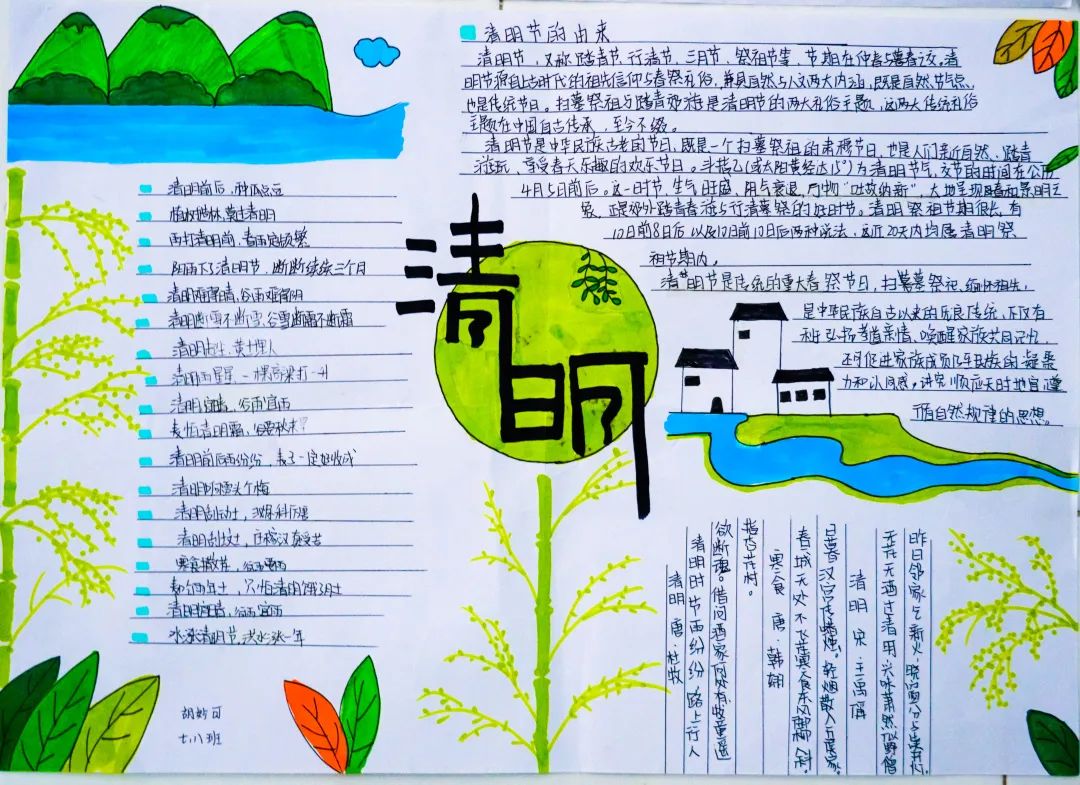 清明节的由来
清明节，又称踏青节、行清节、三月节、祭祖节等，节期在仲春与暮春之交。清
明节源自上古时代的祖先信仰与春祭礼俗，兼具自然与人文两大内涵，既是自然节气点，
也是传统节日。扫墓祭祖与踏青郊游是清明节的两大礼俗主题，这两大传统礼俗
主题在中国自古传承，至今不辍。
清明节是中华民族古老的节日，既是一个扫墓祭祖的肃穆节日，也是人们亲近自然、踏青
游玩、享受春天乐趣的欢乐节日。斗指乙(或太阳黄经达15°)为清明节气，交节的时间在公历
4月5日前后。这一时节，生气旺盛、阴气衰退，万物“吐故纳新”，大地呈现春和景明之
象，正是郊外踏青春游与行清墓祭的好时节。清明祭祖节期很长，有
10日前8日后以及10日前10日后两种说法，这近20天内均属清明祭
祖节期内。
清明节是传统的重大春祭节日，扫墓祭祀、缅怀祖先，
是中华民族自古以来的优良传统，不仅有
利于弘扬孝道亲情、唤醒家族共同记忆，
还可促进家族成员乃至民族的凝聚
力和认同感。讲究顺应天时地宜遵
循自然规律的思想。
清明
清明前后，种瓜点豆
植树造林，莫过清明
雨打清明前，春雨定频繁
阴雨下了清明节，断断续续三个月
清明难得晴，谷雨难得阴
清明断雪不断雪，谷雪断霜不断霜
清明雨星星，一棵高粱打一升
清明宜晴，谷雨宜雨
麦怕清明霜，谷要秋来
清明前后雨纷纷，麦子一定好收成
寒食撒花，谷雨
清明宜晴，谷雨宜雨
水涨清明节，洪水涨一年
胡妙可
七、八班
昨日邻家乞新火，晓窗分与读书灯。
无花无酒过清明，兴味萧然似野僧
清明 宋·王禹偁
日暮汉宫传蜡烛。轻烟散入五侯家。
春城无处不飞花寒食东风御柳斜。
寒食 唐·韩翃
指杏花村。
欲断魂。借问酒家何处有牧童遥
清明时节雨纷纷路上行人
清明 唐·杜牧